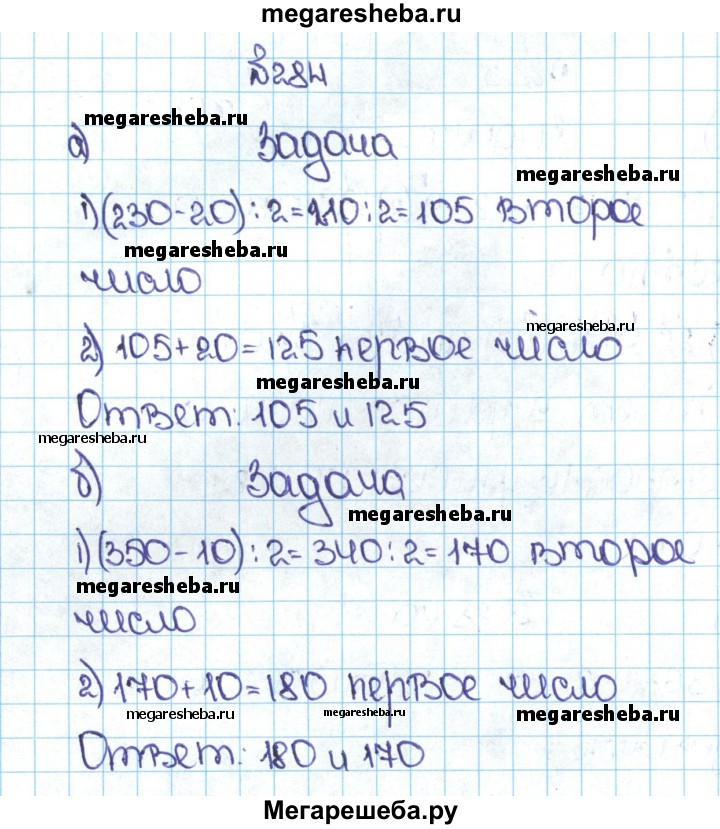 megaresheba.ru
№284
megaresheba.ru
а) Задача
megaresheba.ru
1) (230-20):2=210:2=105 второе
megaresheba.ru
число
megaresheba.ru
2) 105+20=125 первое число
megaresheba.ru
Ответ: 105 и 125
megaresheba.ru
б) Задача
megaresheba.ru
1) (350-10):2=340:2=170 второе
megaresheba.ru
число
2) 170+10=180 первое число
megaresheba.ru megaresheba.ru megaresheba.ru
Ответ: 180 и 170
Мегарешеба.ру